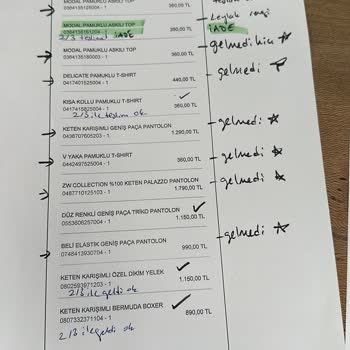 MODAL PAMUKLU ASKILI TOP
0364135125004 - 1 360,00 TL
Leylak rengi
MODAL PAMUKLU ASKILI TOP
0364135151204 - 1 İADE 360,00 TL İADE
2/3 teslim
MODAL PAMUKLU ASKILI TOP
0364135180003 - 1 360,00 TL gelmedi
DELICATE PAMUKLU T-SHIRT
0417401525004 - 1 440,00 TL gelmedi
KISA KOLLU PAMUKLU T-SHIRT
0417415825004 - 1 360,00 TL
2/3 ile teslim ok
KETEN KARIŞIMLI GENİŞ PAÇA PANTOLON
0438707605203 - 1 1.290,00 TL gelmedi
V YAKA PAMUKLU T-SHIRT
0442497525004 - 1 360,00 TL gelmedi
ZW COLLECTION %100 KETEN PALAZZO PANTOLON
0487710125103 - 1 1.790,00 TL gelmedi
DÜZ RENKLİ GENİŞ PAÇA TRİKO PANTOLON
0553606257004 - 1 1.150,00 TL
BELİ ELASTİK GENİŞ PAÇA PANTOLON
0748413930704 - 1 990,00 TL gelmedi
KETEN KARIŞIMLI ÖZEL DİKİM YELEK
0802593971203 - 1 1.150,00 TL
2/3 ile geldi ok
KETEN KARIŞIMLI BERMUDA BOXER
0807332371104 - 1 890,00 TL
2/3 ile geldi ok